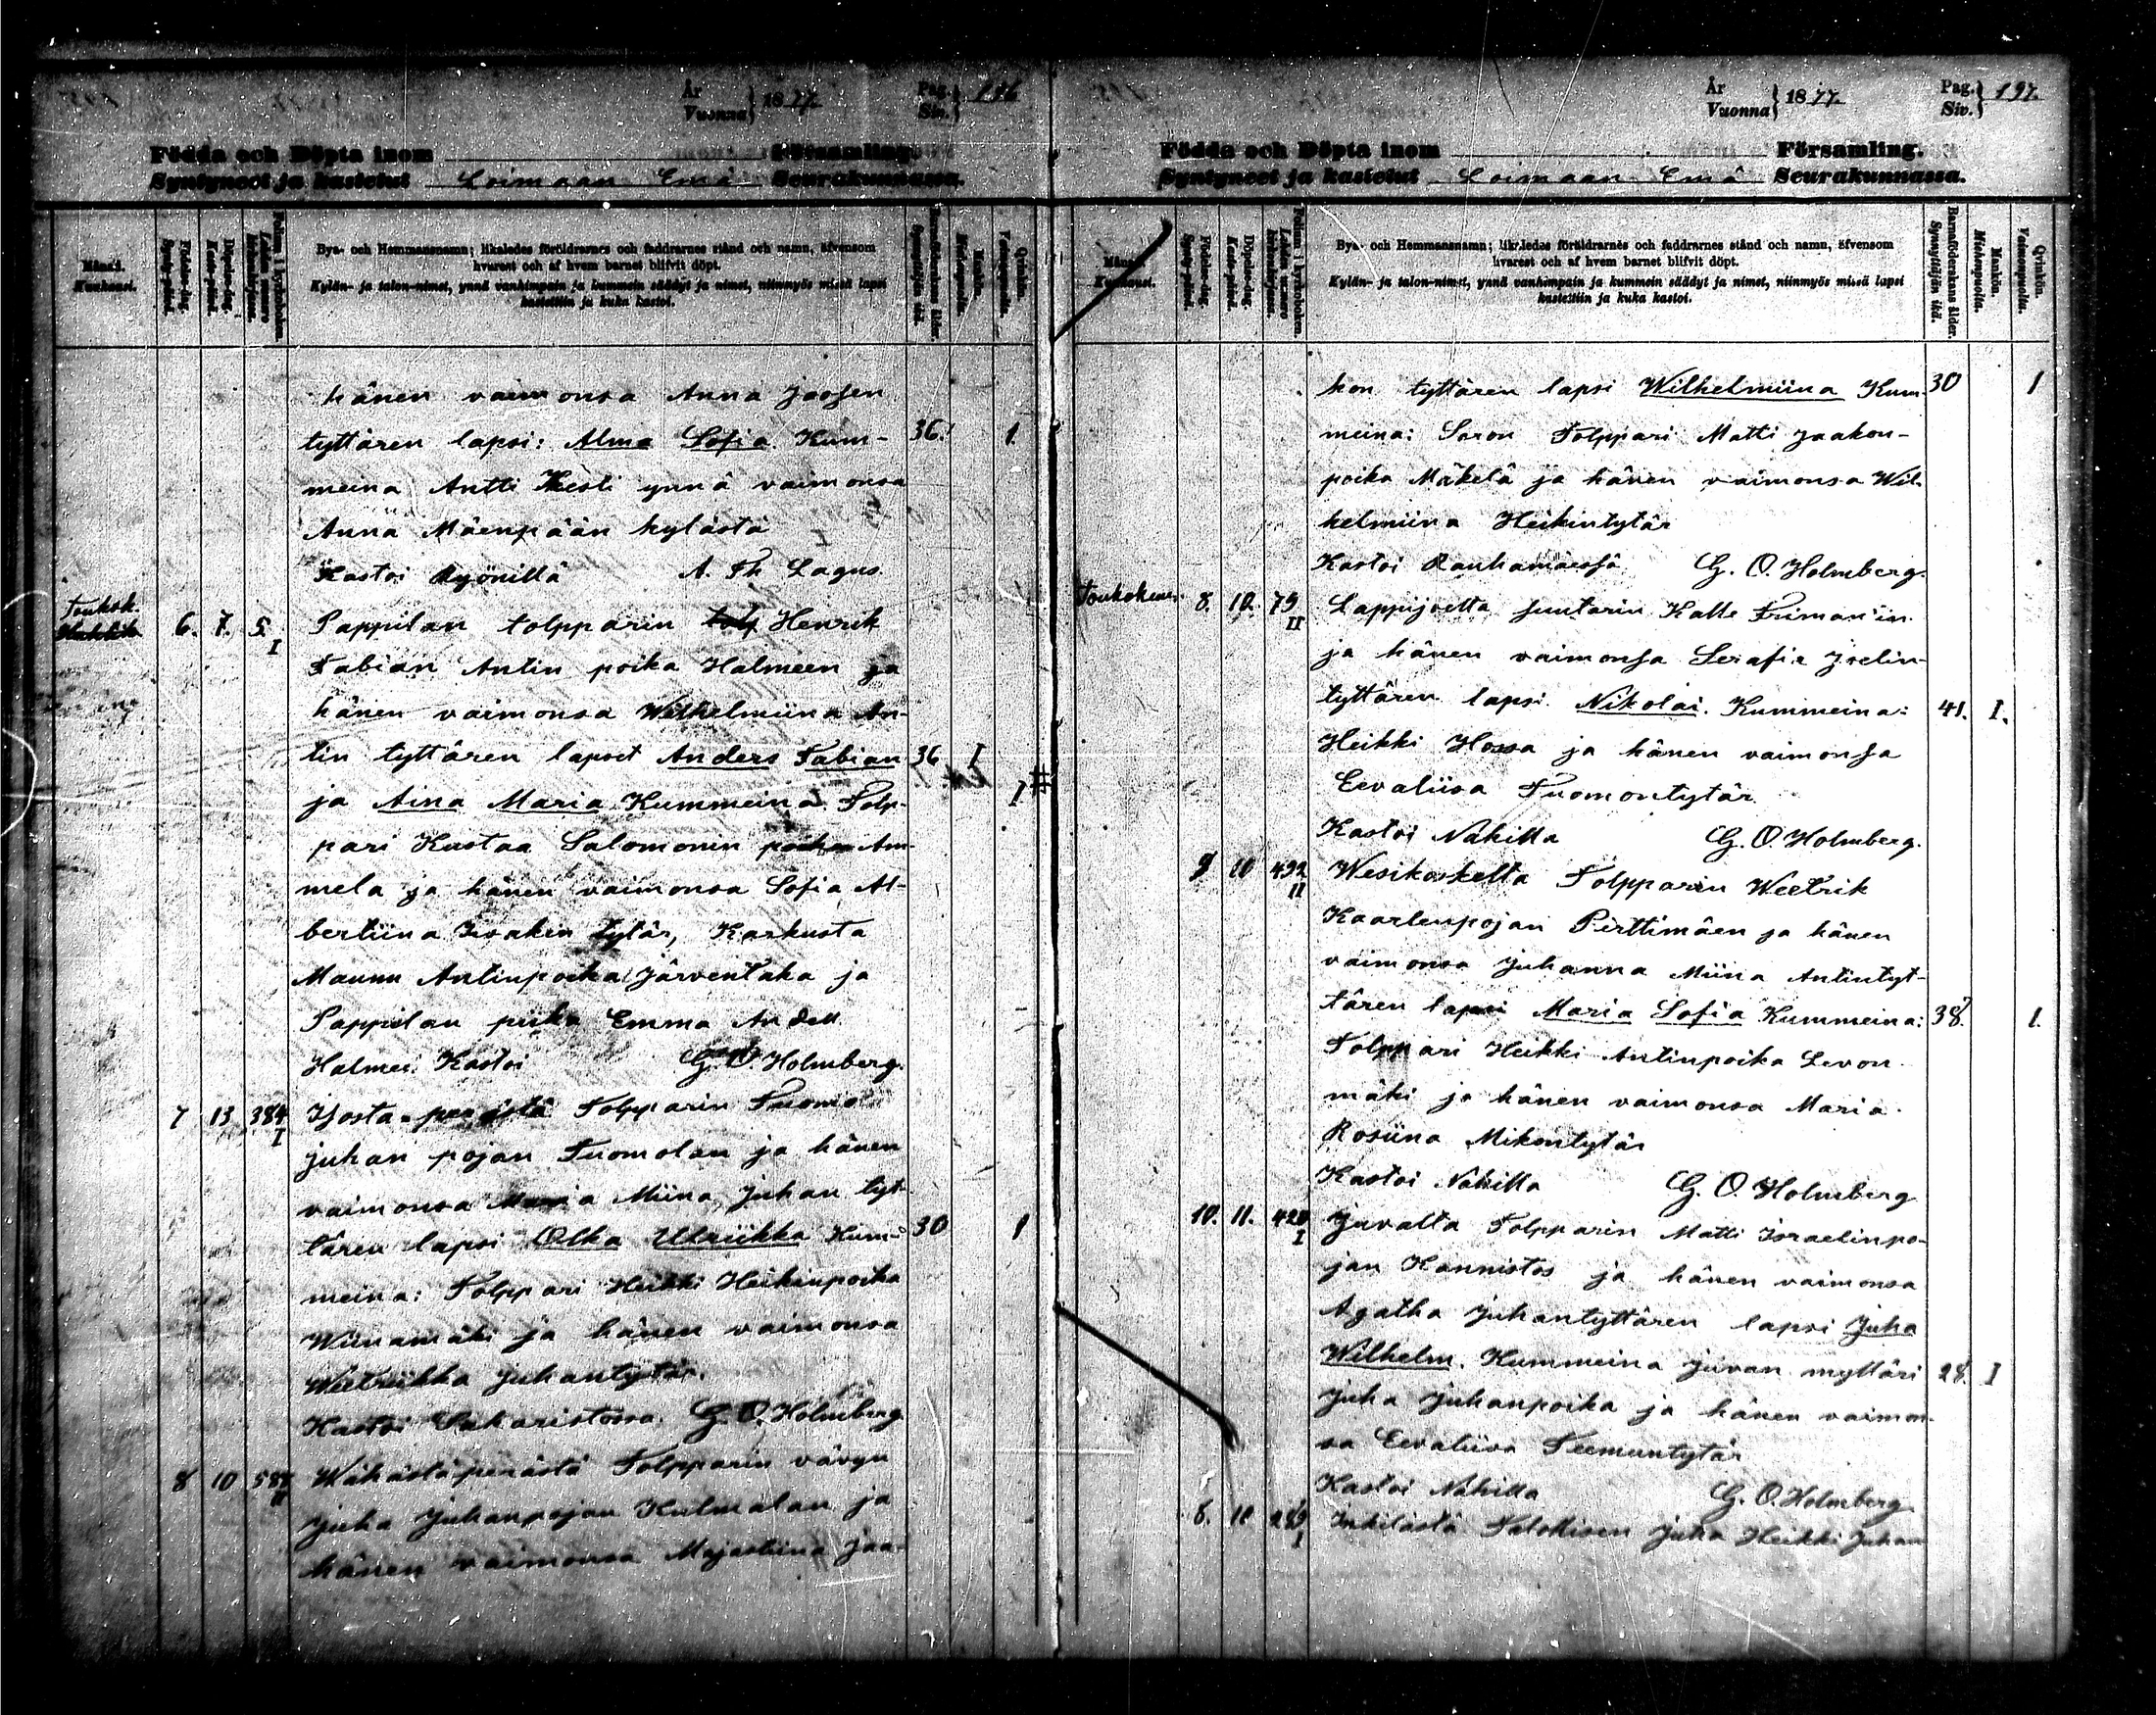 År
Vuonna } 1877.
Pag.
Siv. } 196
Födda och Döpta inom Församling.
Syntyneet ja kastetut Loimaan Emä Seurakunnassa.
Månad. Kuukausi.
Födelse-dag. Synty-päivä.
Döpelse-dag. Kaste-päivä.
Folium i kyrkoboken. Lehden numero kirkonkirjassa.
Bya- och Hemmansnamn; likaledes föräldrarnes och faddrarnes stånd och namn, äfvensom
hvarest och af hvem barnet blifvit döpt.
Kylän- ja talon-nimet, ynnä vanhimpain ja kummein säädyt ja nimet, niinmyös missä lapsi
kastettiin ja kuka kastoi.
Barnaföderskans ålder. Synnyttäjän ikä.
Mankön. Miehenpuolia.
Qvinkön. Vaimonpuolia.
hänen vaimonsa Anna Joosen
tyttären lapsi: Alma Sofia. Kum- 36. 1.
meina Antti Kesti ynnä vaimonsa
Anna Mäenpään kylästä
Kastoi Ryönillä A. Th Lagus.
Toukok. 6. 7. 5. I Pappilan tolpparin tolp Henrik
Fabian Antin poika Halmeen ja
hänen vaimonsa Wilhelmiina An-
tin tyttären lapset Anders Fabian 36 I
ja Aina Maria. Kummeina Tolp- I
pari Kustaa Salomonin poika Am-
mela ja hänen vaimonsa Sofia Al-
bertiina Iivakin tytär, Karkusta
Maunu Antinpoika Järventaka ja
Pappilan piika Emma
Halmes. Kastoi G. O. Holmberg.
7 13 384 I Isosta-perästä Tolpparin Tuomo
Juhan pojan Tuomolan ja hänen
vaimonsa Maria Miina Juhan tyt-
tären lapsi Olka Ulriikka Kum- 30 1
meina: Tolppari Heikki Heikinpoika
Wiinamäki ja hänen vaimonsa
Weetriikka Juhantytär.
Kastoi G. O. Holmberg
8 10 588 II Wähästäperästä Tolpparin vävyn
Juha Juhanpojan Kulmalan ja
hänen vaimonsa Majastiina Jaa-
År
Vuonna } 1877.
Pag.
Siv. } 197.
Födda och Döpta inom Församling.
Syntyneet ja kastetut Loimaan Emä Seurakunnassa.
Månad. Kuukausi.
Födelse-dag. Synty-päivä.
Döpelse-dag. Kaste-päivä.
Folium i kyrkoboken. Lehden numero kirkonkirjassa.
Bya- och Hemmansnamn; likaledes föräldrarnes och faddrarnes stånd och namn, äfvensom
hvarest och af hvem barnet blifvit döpt.
Kylän- ja talon-nimet, ynnä vanhimpain ja kummein säädyt ja nimet, niinmyös missä lapsi
kastettiin ja kuka kastoi.
Barnaföderskans ålder. Synnyttäjän ikä.
Mankön. Miehenpuolia.
Qvinkön. Vaimonpuolia.
kon tyttären lapsi Wilhelmiina Kum- 30 1
meina: Soron Tolppari Matti Jaakon-
poika Mäkelä ja hänen vaimonsa Wil-
helmiina Heikintytär
Kastoi Rauhamäessä G. O. Holmberg.
Toukokuu. 8. 10. 75 II Lappijoelta suutarin Kalle Friman'in
ja hänen vaimonsa Serafia Iselin-
tyttären lapsi. Nikolai. Kummeina: 41. I.
Heikki Hossa ja hänen vaimonsa
Eevaliisa Tuomontytär
Kastoi Nahilla G. O. Holmberg.
9 10 492 II Wesikoskelta Tolpparin Weetrik
Kaarlenpojan Perttimäen ja hänen
vaimonsa Juhanna Miina Antintyt-
tären lapsi Maria Sofia Kummeina: 38. 1.
Tolppari Heikki Antinpoika Levon-
mäki ja hänen vaimonsa Maria
Rosiina Mikontytär
Kastoi Nahilla G. O. Holmberg
10. 11. 420 I Juvalta Tolpparin Matti Israelinpo-
jan Kannistos ja hänen vaimonsa
Agatha Juhantyttären lapsi Juha
Wilhelm. Kummeina Juvan mylläri 28. I
Juha Juhanpoika ja hänen vaimon-
sa Eevaliisa Teemuntytär
Kastoi Nahilla G. O. Holmberg
8. 10 289 I Inkilästä Talollisen Juha Heikki Juhan